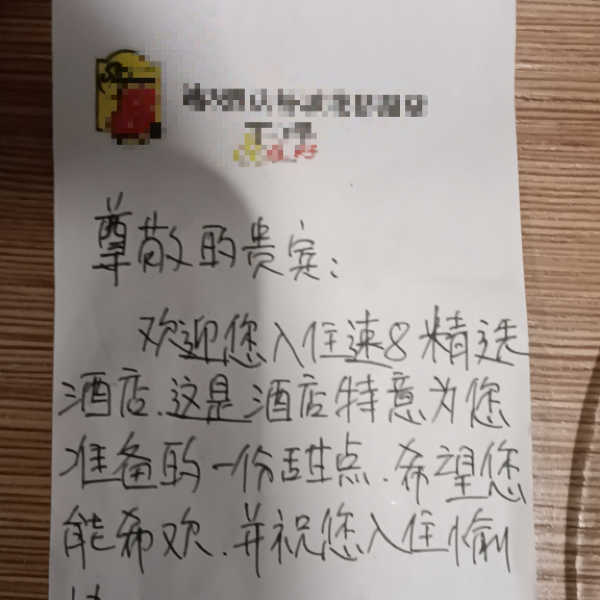 尊敬的贵宾:
欢迎您入住速8精选
酒店.这是酒店特意为您
准备的一份甜点.希望您
能希欢.并祝您入住愉